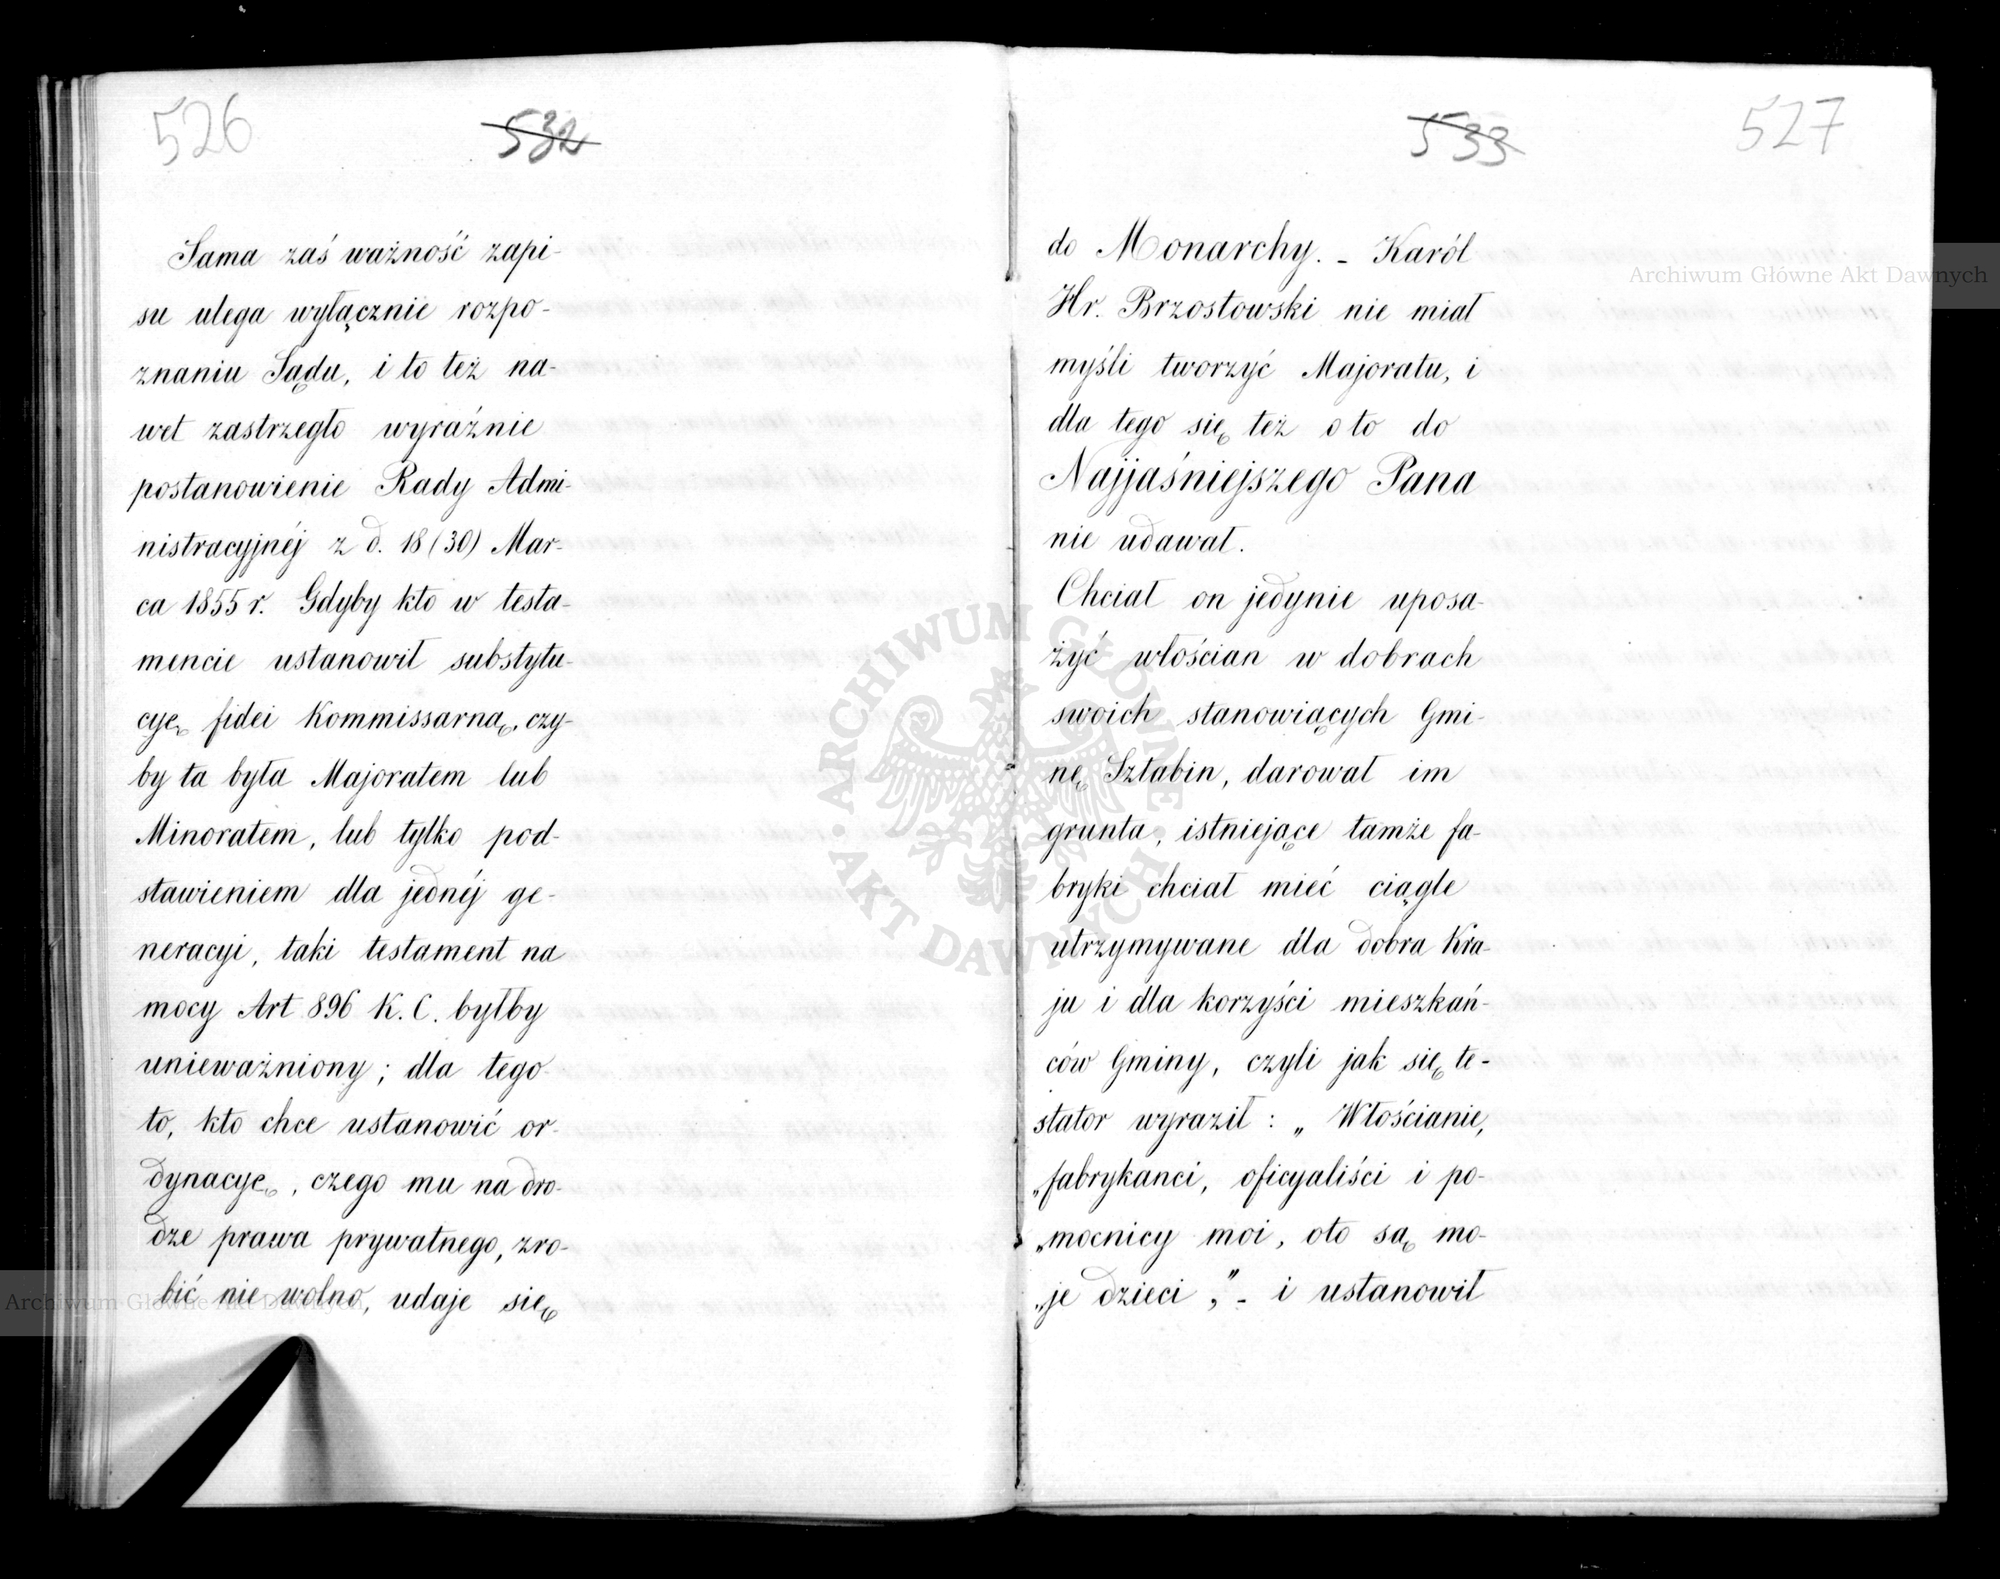 526
532
Sama zaś ważność zapi-
su ulega wyłącznie rozpo-
znaniu Sądu, i to też na-
wet zastrzegło wyraźnie
postanowienie Rady Admi-
nistracyjnéj z d. 18 (30) Mar-
ca 1855 r. Gdyby kto w testa-
mencie ustanowił substytu-
cyę fidei Kommissarną, czy-
by ta była Majoratem lub
Minoratem, lub tylko pod-
stawieniem dla jednéj ge-
neracyi, taki testament na
mocy Art 896 K. C. byłby
unieważniony; dla tego-
to, kto chce ustanowić or-
dynacyę, czego mu na dro-
dze prawa prywatnego, zro-
bić nie wolno, udaje się
533
527
do Monarchy. - Karól
Hr. Brzostowski nie miał
myśli tworzyć Majoratu, i
dla tego się też o to do
Najjaśniejszego Pana
nie udawał.
Chciał on jedynie uposa-
żyć włościan w dobrach
swoich stanowiących Gmi-
nę Sztabin, darował im
grunta, istniejące tamże fa-
bryki chciał mieć ciągle
utrzymywane dla dobra Kra-
ju i dla korzyści mieszkań-
ców Gminy, czyli jak się te-
stator wyraził: „ Włościanie,
„fabrykanci, oficyaliści i po-
„mocnicy moi, oto są mo-
„je dzieci," - i ustanowił
Archiwum Główne Akt Dawnych
Archiwum Główne Akt Dawnych
ARCHIWUM GŁÓWNE
AKT DAWNYCH